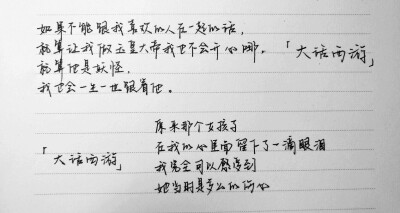 如果不能跟我喜欢的人在一起的话,
就算让我做玉皇大帝我也不会开心哪。「大话西游」
就算他是妖怪,
我也会一生一世跟着他。
原来那个女孩子
在我的心里面留下了一滴眼泪
「大话西游」
我完全可以感受到
她当时是多么的伤心